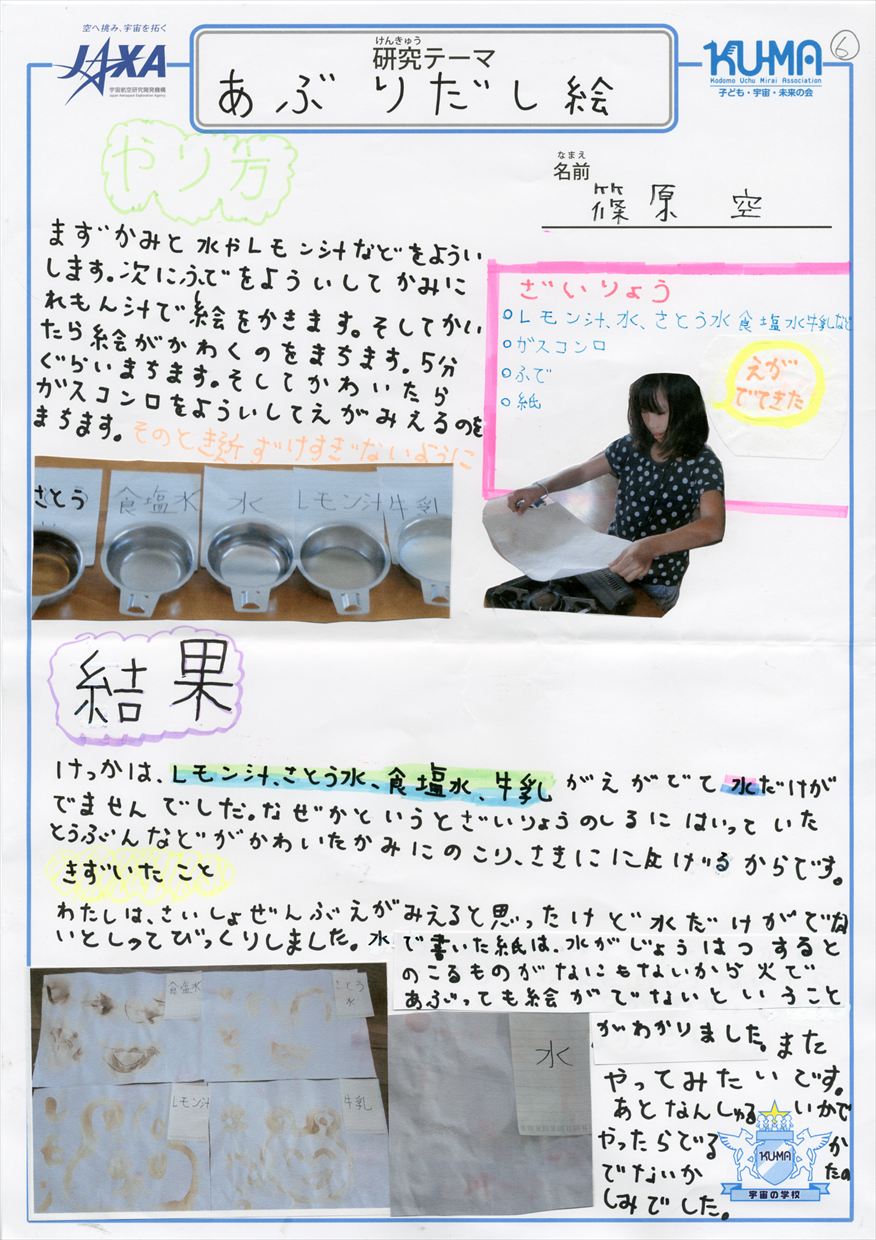 空へ挑み、宇宙を拓く
JAXA
宇宙航空研究開発機構
Japan Aerospace Exploration Agency
けんきゅう
研究テーマ
あぶりだし絵
KU-MA
Kodomo Uchu Mirai Association
子ども・宇宙・未来の会
6
やり方
なまえ
名前
篠原 空
まずかみと水やレモン汁などをようい
します。次にふでをよういしてかみに
れもん汁で絵をかきます。そしてかい
たら絵がかわくのをまちます。5分
ぐらいまちます。そしてかわいたら
ガスコンロをよういしてえがみえるのを
まちます。そのとき近ずけすぎないように
ざいりょう
○レモン汁、水、さとう水食塩水牛乳など
○ガスコンロ
○ふで
○紙
えが
でてきた
さとう
食塩水
水
レモン汁
牛乳
結果
けっかは、レモン汁、さとう水、食塩水、牛乳がえがでて水だけが
でませんでした。なぜかというとざいりょうのしるにはいっていた
とうぶんなどがかわいたかみにのこり、さきにこげるからです。
きずいたこと
わたしは、さいしょぜんぶえがみえると思ったけど水だけがでな
いとしってびっくりしました。水で書いた紙は、水がじょうはつすると
のこるものがなにもないから火で
あぶっても絵がでないということ
がわかりました。また
やってみたいです。
あとなんしゅるいかで
やったらでるか
でないかたの
しみでした。
食塩水
さとう
水
レモン汁
牛乳
水
KU-MA
宇宙の学校